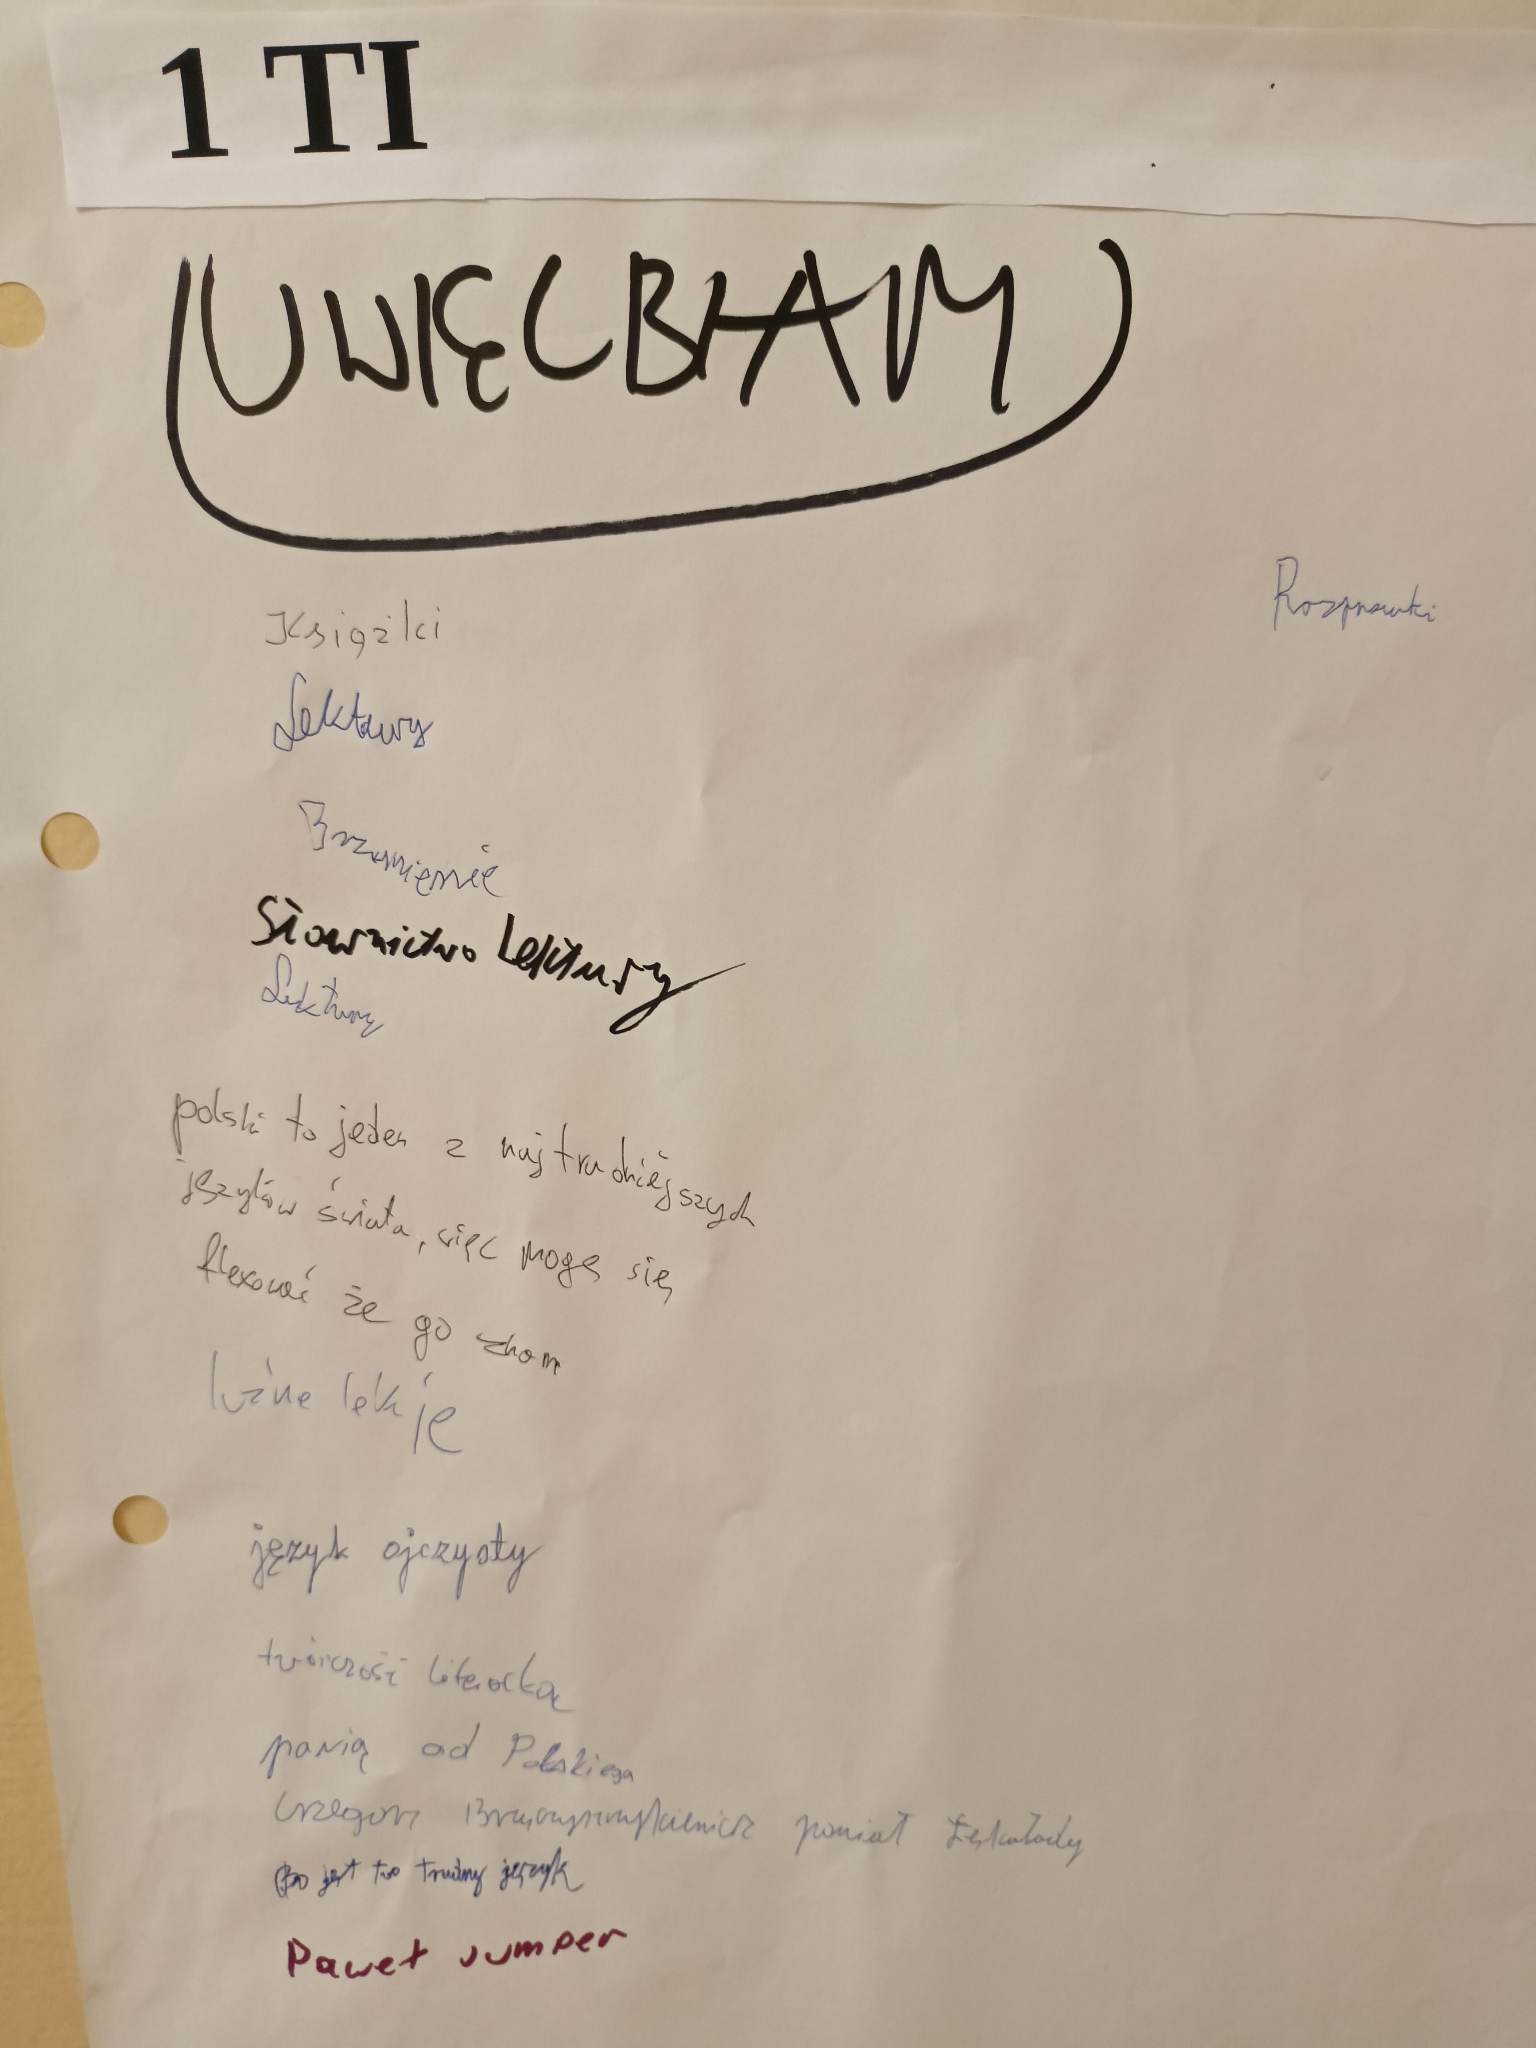 1 TI
UWIĘLBIAM
Książki
Rozprawki
Lektury
Brzmienie
Słownictwo Lektury
Lektury
polski to jeden z najtrudniejszych
języków świata, więc mogę się
flexować że go znam
luźne lekcje
język ojczysty
twórczość literacką
panią od Polskiego
Grzegorz powiat Łękołody
Bo jest to trudny język
Paweł Jumper